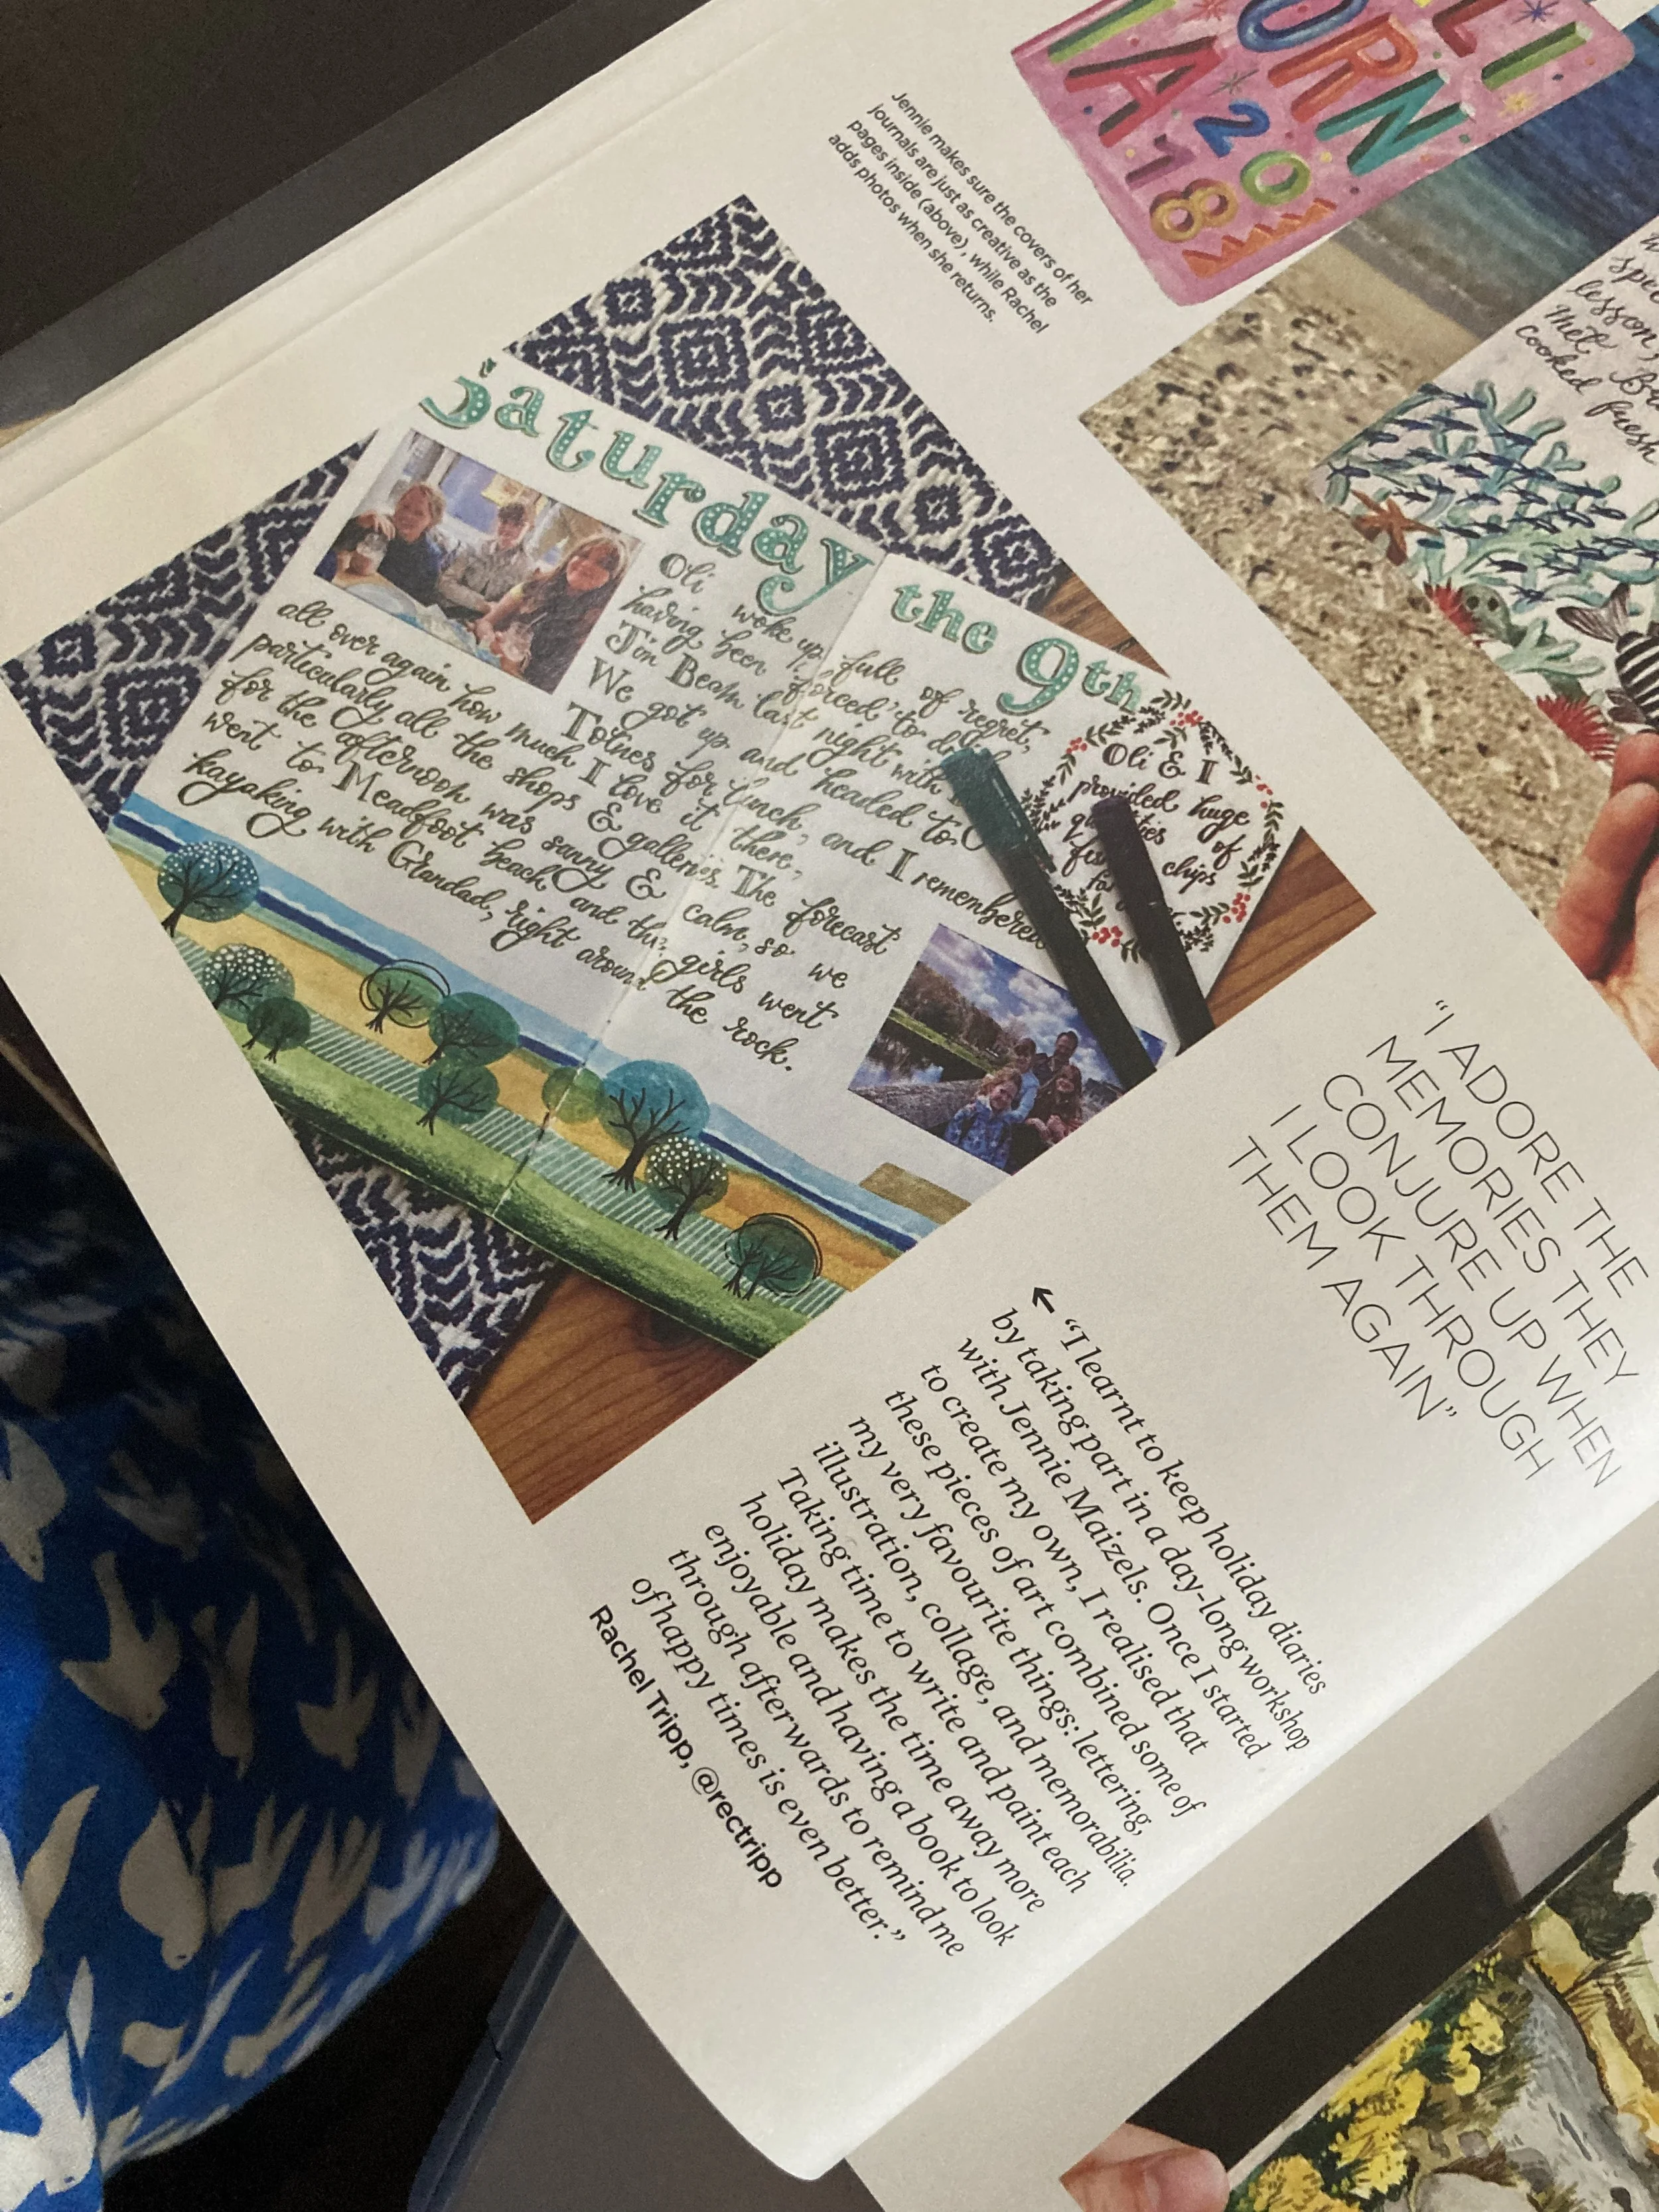 LI
ORN
IA 20
18
Jennie makes sure the covers of her
journals are just as creative as the
pages inside (above), while Rachel
adds photos when she returns.
lesson,
Met
cooked fresh
Saturday the 9th
Oli woke up full of regret,
having been forced to
Jim Beam last night with
We got up and headed to
Totnes for lunch, and I remembered
all over again how much I love it there,
particularly all the shops & galleries. The forecast
for the afternoon was sunny & calm, so we
went to Meadfoot beach and the girls went
kayaking with Grandad, right around the rock.
Oli & I
provided huge
of
chips
"I ADORE THE
MEMORIES THEY
CONJURE UP WHEN
I LOOK THROUGH
THEM AGAIN"
← "I learnt to keep holiday diaries
by taking part in a day-long workshop
with Jennie Maizels. Once I started
to create my own, I realised that
these pieces of art combined some of
my very favourite things: lettering,
illustration, collage, and memorabilia.
Taking time to write and paint each
holiday makes the time away more
enjoyable and having a book to look
through afterwards to remind me
of happy times is even better."
Rachel Tripp, @rectripp